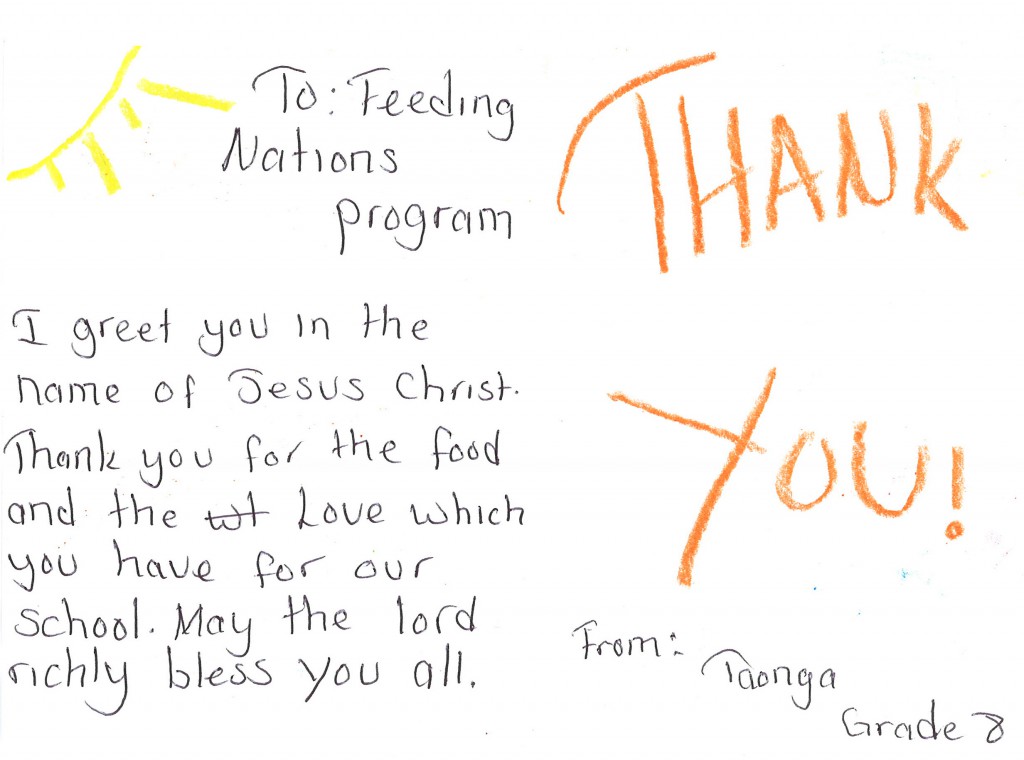 To: Feeding
Nations
program
I greet you in the
name of Jesus Christ.
Thank you for the food
and the wt Love which
you have for our
school. May the lord
richly bless you all.
THANK
YOU!
From:
Taonga
Grade 8